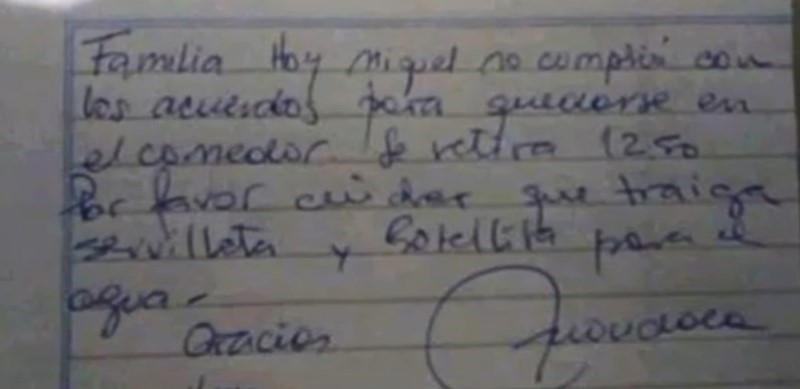 Familia Hoy Miguel no cumplió con
los acuerdos para quedarse en
el comedor. Se retira 12:50
Por favor cuidar que traiga
servilleta y botellita para el
agua-
Gracias